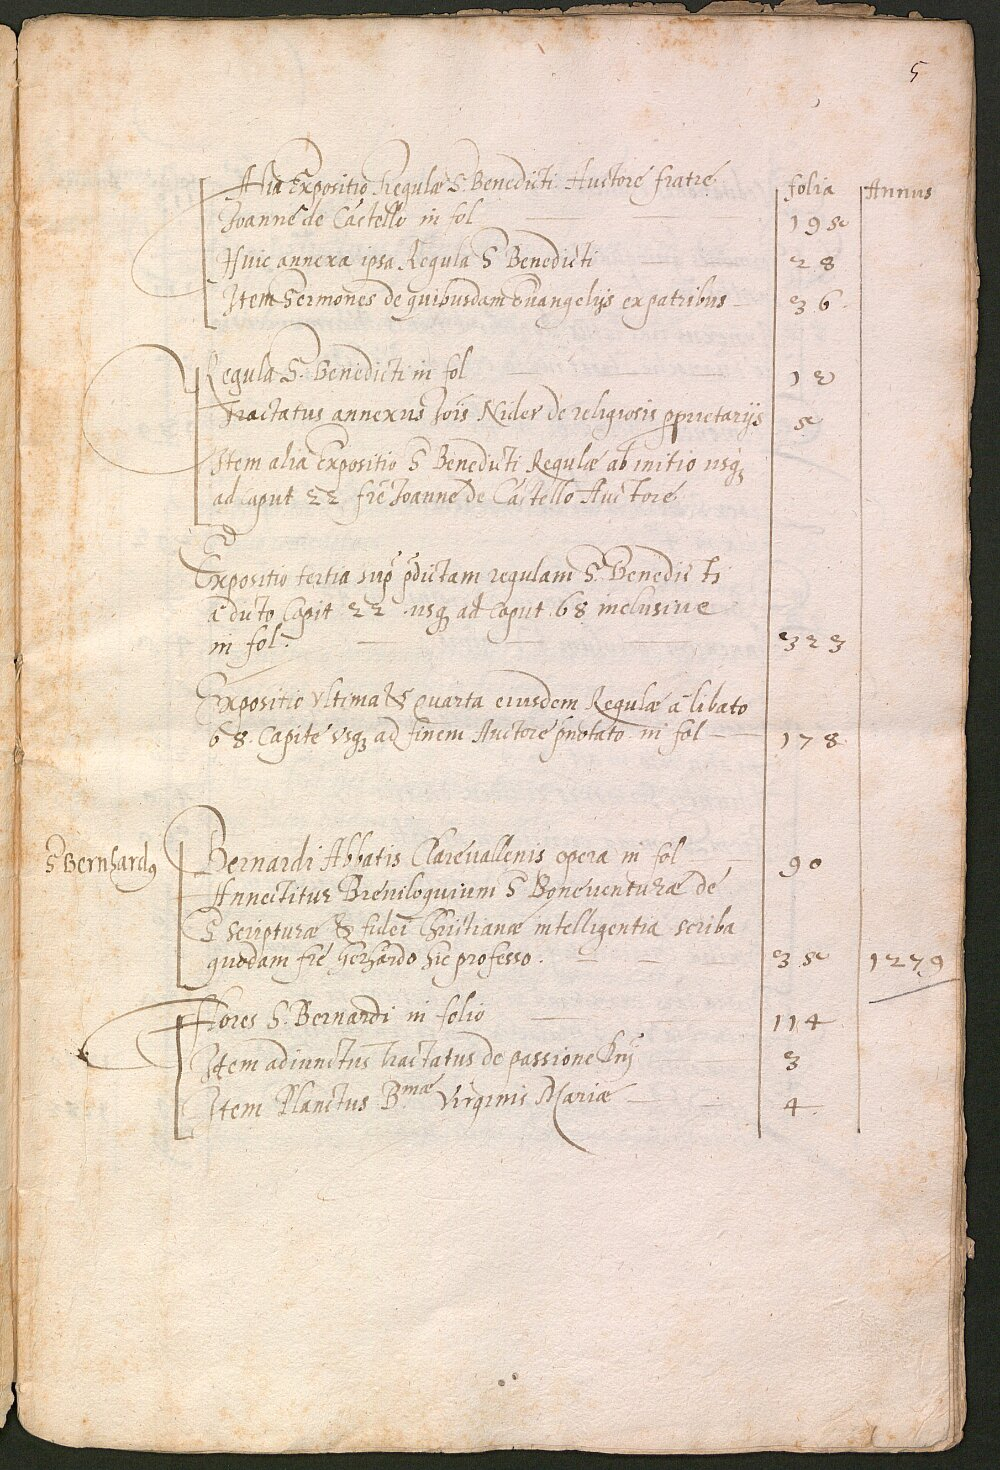 5
folia Annus
Alia Expositio Regulæ S. Benedicti Auctore fratre
Joanne de Castello in fol 195
Huic annexa ipsa Regula S Benedicti 28
Item Sermones de quibusdam Euangelijs ex patribus 36
Regula S. Benedicti in fol 12
Tractatus annexus Jois Nider de religiosis pprietarijs 5
Item alia Expositio S Benedicti Regulæ ab initio usq
ad caput 22 fre Joanne de Castello Auctore
Expositio tertia sup pdictam regulam S. Benedicti
a dicto Capit 22 usq ad caput 68 inclusiue
in fol. 323
Expositio Vltima & quarta eiusdem Regulæ a libato
68. Capite vsq ad finem Auctore pnotato in fol 178
S Bernhardq
Bernardi Abbatis Clareuallensis opera in fol 90
Annectitur Breuiloquium S Boneuenturæ de
S Scripturæ & fidei Christianæ intelligentia scriba
quodam fre Gerhardo hic professo. 35 1279
Flores S. Bernardi in folio 114
Item adiunctus tractatus de passione Dnj 3
Item Planctus B.mæ Virginis Mariæ 4